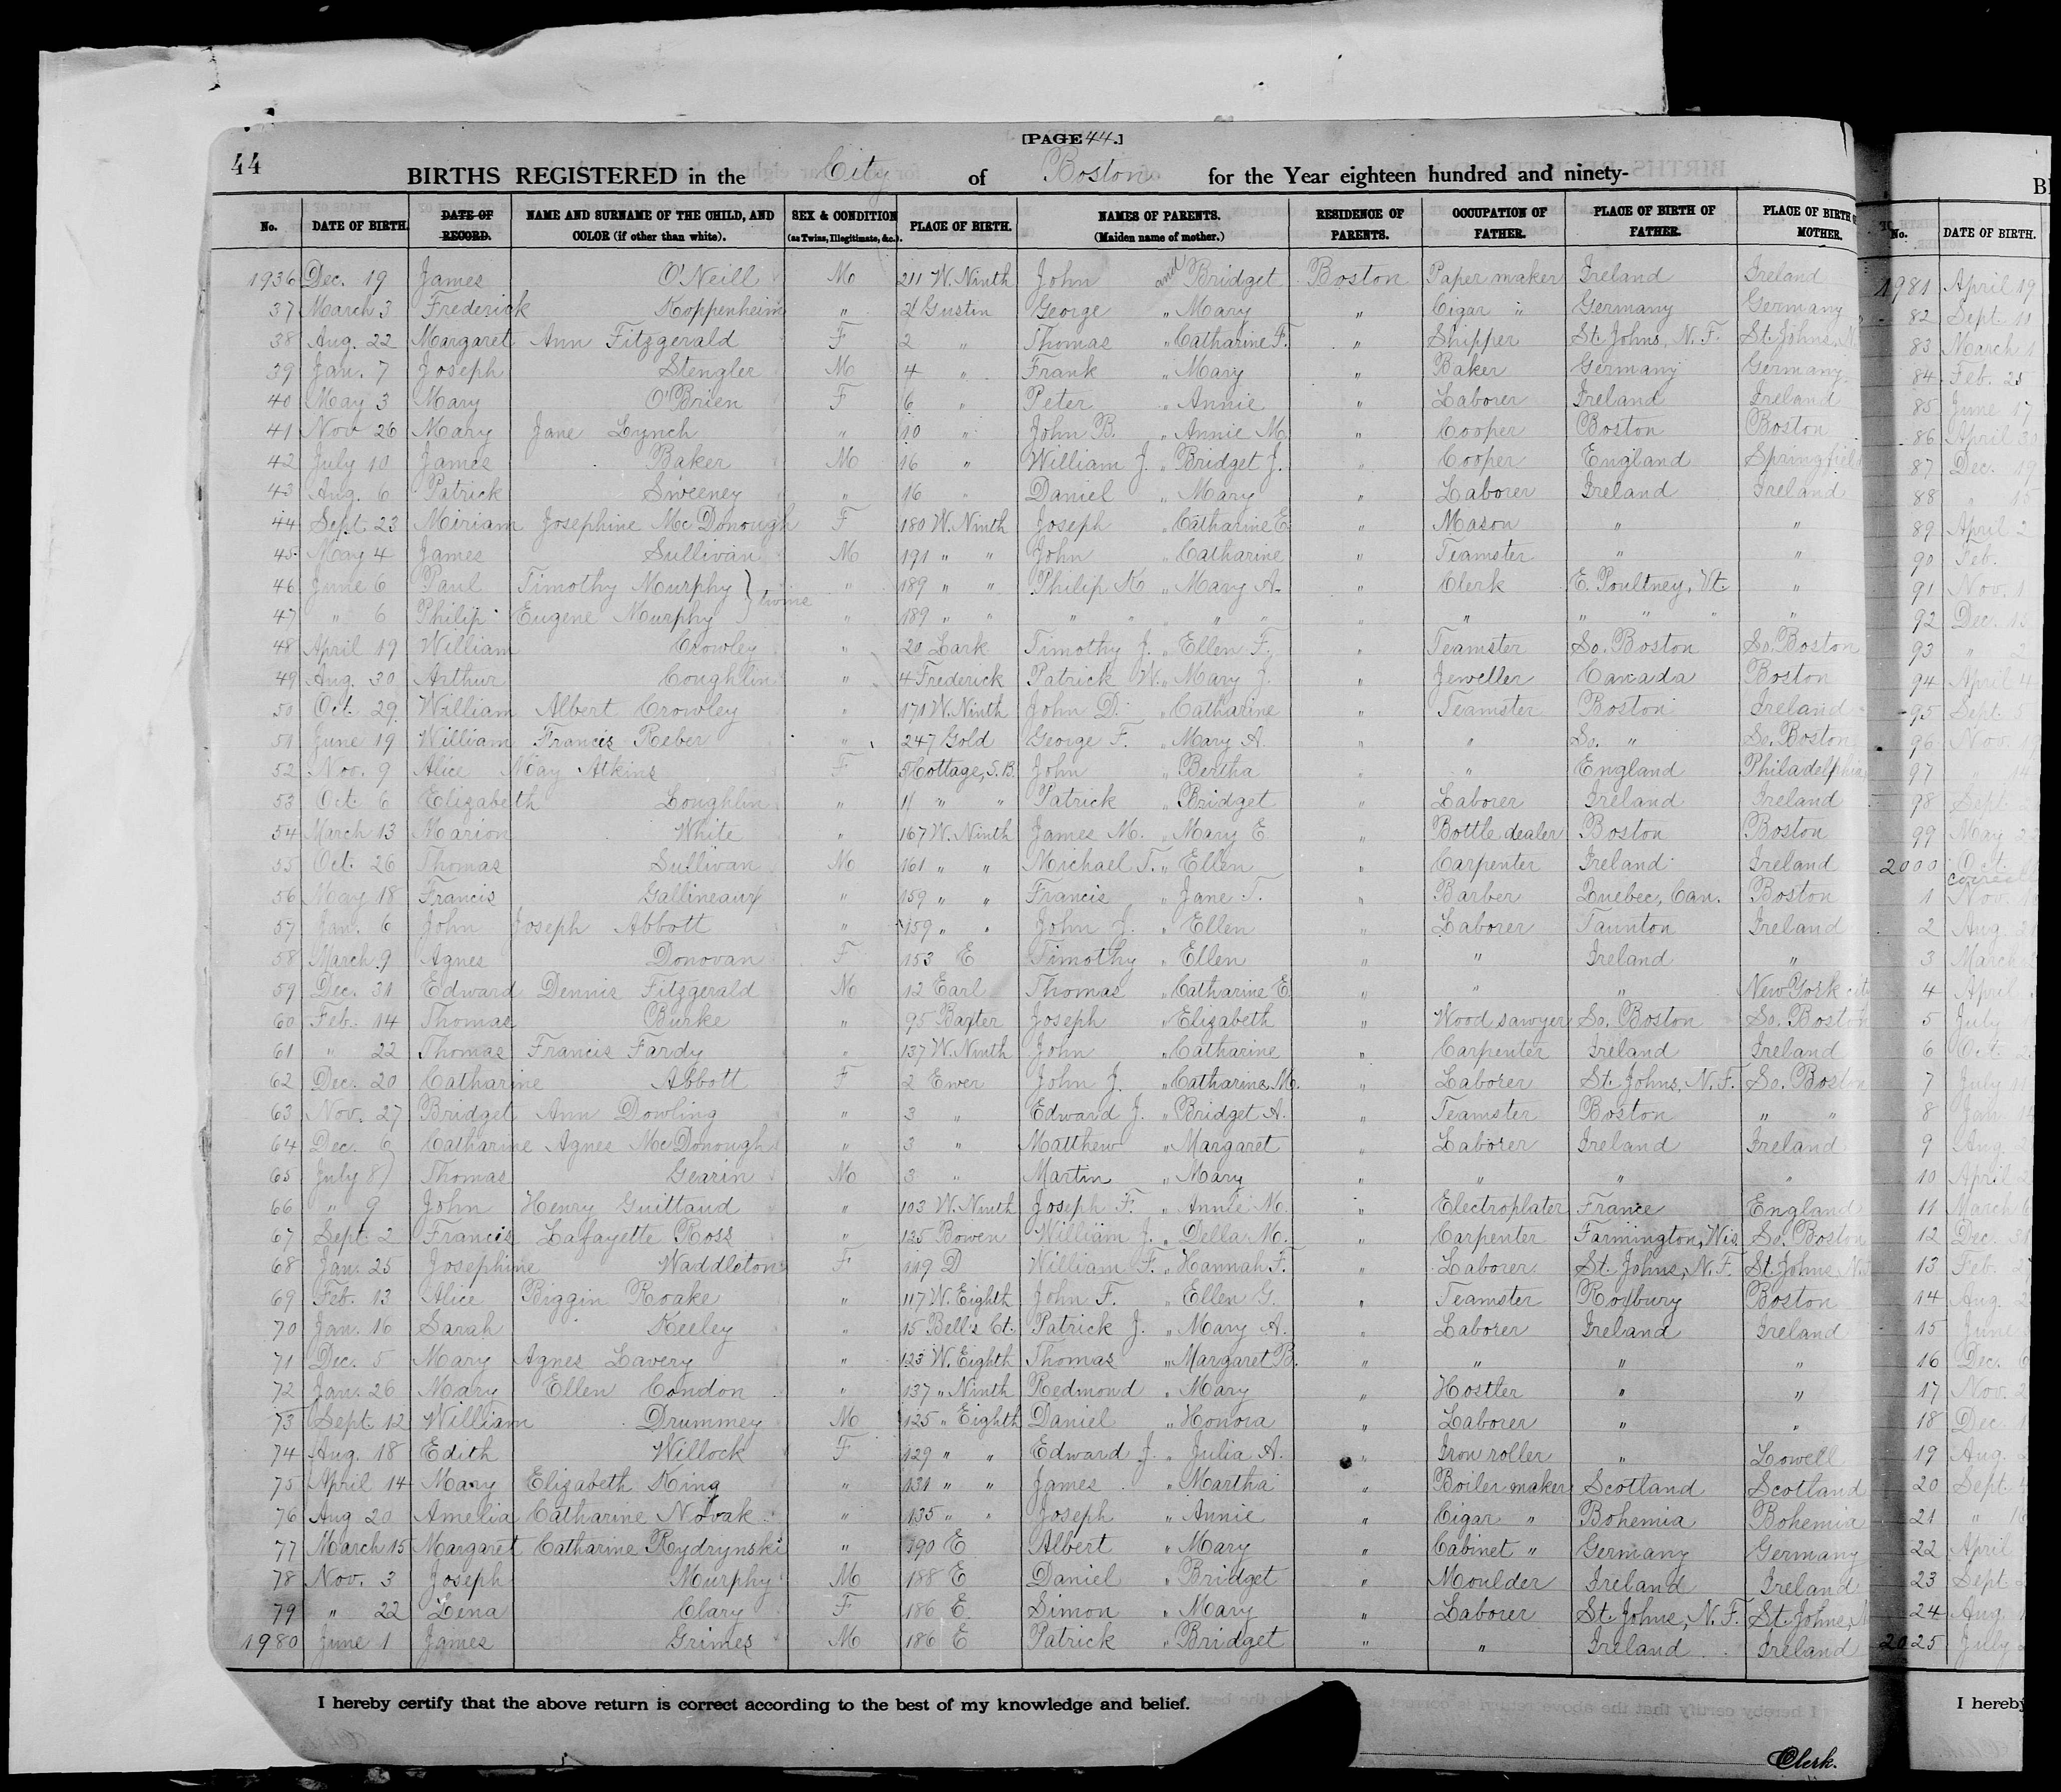 [PAGE 44.]
44
BIRTHS REGISTERED in the City of Boston for the Year eighteen hundred and ninety-
No. DATE OF BIRTH. DATE OF RECORD. NAME AND SURNAME OF THE CHILD, AND COLOR (if other than white). SEX & CONDITION (as Twins, Illegitimate, &c.). PLACE OF BIRTH. NAMES OF PARENTS. (Maiden name of mother.) RESIDENCE OF PARENTS. OCCUPATION OF FATHER. PLACE OF BIRTH OF FATHER. PLACE OF BIRTH OF MOTHER.
1936 Dec. 19 James O'Neill M 211 W. Ninth John and Bridget Boston Paper maker Ireland Ireland
37 March 3 Frederick Koppenheim " 2 Gustin George " Mary " Cigar " Germany Germany
38 Aug. 22 Margaret Ann Fitzgerald F 2 " Thomas " Catharine F. " Shipper St. Johns, N.F. St. Johns, N.
39 Jan. 7 Joseph Stengler M 4 " Frank " Mary " Baker Germany Germany
40 May 3 Mary O'Brien F 6 " Peter " Annie " Laborer Ireland Ireland
41 Nov 26 Mary Jane Lynch " 10 " John B. " Annie M. " Cooper Boston Boston
42 July 10 James Baker M 16 " William J. " Bridget J. " Cooper England Springfield
43 Aug. 6 Patrick Sweeney " 16 " Daniel " Mary " Laborer Ireland Ireland
44 Sept. 23 Miriam Josephine McDonough F 180 W. Ninth Joseph " Catharine E " Mason " "
45 May 4 James Sullivan M 191 " " John " Catharine " Teamster " "
46 June 6 Paul Timothy Murphy } twins " 189 " " Philip K " Mary A. " Clerk E. Poultney, Vt. "
47 " 6 Philip Eugene Murphy } " 189 " " " " " " " " " " " "
48 April 19 William Crowley " 20 Lark Timothy J. " Ellen F. " Teamster So. Boston So. Boston
49 Aug. 30 Arthur Coughlin " 4 Frederick Patrick W. " Mary J. " Jeweller Canada Boston
50 Oct. 29 William Albert Crowley " 171 W. Ninth John D. " Catharine " Teamster Boston Ireland
51 June 19 William Francis Reber " 247 Gold George F. " Mary A. " " So. " So. Boston
52 Nov. 9 Alice May Atkins F Cottage, S.B. John " Bertha " " England Philadelphia
53 Oct. 6 Elizabeth Loughlin " 11 " " Patrick " Bridget " Laborer Ireland Ireland
54 March 13 Marion White " 167 W. Ninth James M. " Mary E " Bottle dealer Boston Boston
55 Oct. 26 Thomas Sullivan M 161 " " Michael T. " Ellen " Carpenter Ireland Ireland
56 May 18 Francis Gallineaux " 159 " " Francis " Jane T. " Barber Quebec, Can. Boston
57 Jan. 6 John Joseph Abbott " 159 " " John J. " Ellen " Laborer Taunton Ireland
58 March 9 Agnes Donovan F 153 E Timothy " Ellen " " Ireland "
59 Dec. 31 Edward Dennis Fitzgerald M 12 Earl Thomas " Catharine E " " " New York city
60 Feb. 14 Thomas Burke " 95 Baxter Joseph " Elizabeth " Wood sawyer So. Boston So. Boston
61 " 22 Thomas Francis Fardy " 137 W. Ninth John " Catharine " Carpenter Ireland Ireland
62 Dec. 20 Catharine Abbott F 2 Ewer John J. " Catharine M. " Laborer St. Johns, N.F. So. Boston
63 Nov. 27 Bridget Ann Dowling " 3 " Edward J. " Bridget A. " Teamster Boston " "
64 Dec. 6 Catharine Agnes McDonough " 3 " Matthew " Margaret " Laborer Ireland Ireland
65 July 8 Thomas Gearin M 3 " Martin " Mary " " " "
66 " 9 John Henry Guittaud " 103 W. Ninth Joseph F. " Annie M. " Electroplater France England
67 Sept. 2 Francis Lafayette Ross " 125 Bowen William J. " Della M. " Carpenter Farmington, Wis. So. Boston
68 Jan. 25 Josephine Waddleton F 119 D William F. " Hannah F. " Laborer St. Johns, N.F. St. Johns, N.F
69 Feb. 13 Alice Biggin Roake " 117 W. Eighth John F. " Ellen G. " Teamster Roxbury Boston
70 Jan. 16 Sarah Keeley " 15 Bell's Ct. Patrick J. " Mary A. " Laborer Ireland Ireland
71 Dec. 5 Mary Agnes Lavery " 123 W. Eighth Thomas " Margaret B. " " " "
72 Jan. 26 Mary Ellen Condon " 137 " Ninth Redmond " Mary " Hostler " "
73 Sept. 12 William Drummey M 125 " Eighth Daniel " Honora " Laborer " "
74 Aug. 18 Edith Willock F 129 " " Edward J. " Julia A. " Iron roller " Lowell
75 April 14 Mary Elizabeth King " 131 " " James " Martha " Boiler maker Scotland Scotland
76 Aug 20 Amelia Catharine Novak " 135 " " Joseph " Annie " Cigar " Bohemia Bohemia
77 March 15 Margaret Catharine Rydrynski " 190 E Albert " Mary " Cabinet " Germany Germany
78 Nov. 3 Joseph Murphy M 188 E Daniel " Bridget " Moulder Ireland Ireland
79 " 22 Lena Clary F 186 E Simon " Mary " Laborer St. Johns, N.F. St. Johns, N
1980 June 1 James Grimes M 186 E Patrick " Bridget " " Ireland Ireland
I hereby certify that the above return is correct according to the best of my knowledge and belief.
Clerk.
No. DATE OF BIRTH.
1981 April 19
82 Sept. 11
83 March 1
84 Feb. 25
85 June 17
86 April 30
87 Dec. 19
88 " 15
89 April 2
90 Feb.
91 Nov. 1
92 Dec. 15
93 " 2
94 April 4
95 Sept. 5
96 Nov. 19
97 " 14
98 Sept.
99 May 2
2000 Oct.
1 Nov.
2 Aug.
3 March
4 April
5 July
6 Oct. 2
7 July 11
8 Jan.
9 Aug.
10 April 2
11 March 6
12 Dec. 31
13 Feb. 2
14 Aug. 2
15 June
16 Dec. 6
17 Nov. 2
18 Dec. 1
19 Aug.
20 Sept.
21 " 16
22 April
23 Sept
24 Aug. 1
2025 July
I hereby